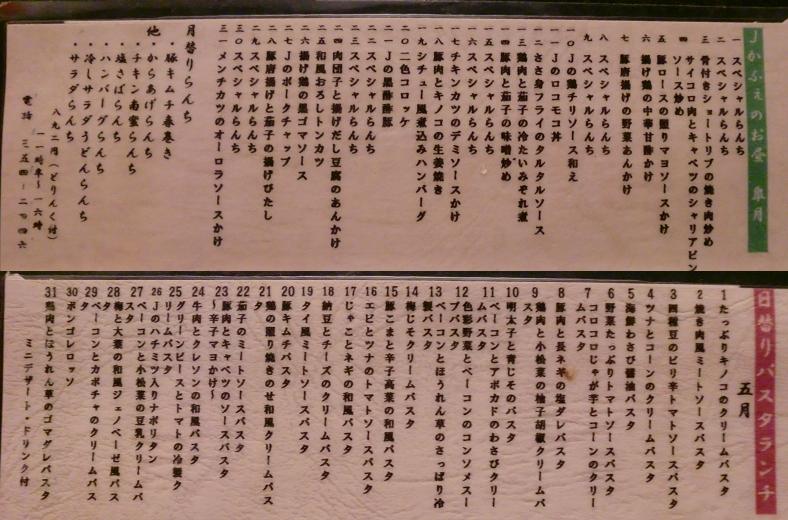 Jかふぇのお昼 皐月
一 スペシャルらんち
二 スペシャルらんち
三 骨付きショートリブの焼き肉炒め
四 サイコロ肉とキャベツのシャリアピン
ソース炒め
五 豚ロースの照りマヨソースかけ
六 揚げ鶏の中華甘酢かけ
七 豚唐揚げの野菜あんかけ
八 スペシャルらんち
九 スペシャルらんち
一〇 Jの鶏チリソース和え
一一 Jのロコモコ丼
一二 ささ身フライのタルタルソース
一三 鶏肉と茄子の冷たいみぞれ煮
一四 豚肉と茄子の味噌炒め
一五 スペシャルらんち
一六 スペシャルらんち
一七 チキンカツのデミソースかけ
一八 豚肉とキノコの生姜焼き
一九 シチュー風煮込みハンバーグ
二〇 二色コロッケ
二一 Jの黒酢酢豚
二二 スペシャルらんち
二三 スペシャルらんち
二四 肉団子と揚げだし豆腐のあんかけ
二五 和風おろしトンカツ
二六 揚げ鶏の黒ゴマソース
二七 Jのポークチャップ
二八 豚唐揚げと茄子の揚げびたし
二九 スペシャルらんち
三〇 スペシャルらんち
三一 メンチカツのオーロラソースかけ
月替りらんち
・豚キムチ春巻き
他
・からあげらんち
・チキン南蛮らんち
・塩さばらんち
・ハンバーグらんち
・冷しサラダうどんらんち
・サラダらんち
八九二円(どりんく付)
一一時半~一六時
電話 三五四-二〇四六
日替りパスタランチ
五月
1 たっぷりキノコのクリームパスタ
2 焼き肉風ミートソースパスタ
3 四種豆のピリ辛トマトソースパスタ
4 ツナとコーンのクリームパスタ
5 海鮮わさび醤油パスタ
6 野菜たっぷりトマトソースパスタ
7 コロコロじゃが芋とコーンのクリー
ムパスタ
8 豚肉と長ネギの塩ダレパスタ
9 鶏肉と小松菜の柚子胡椒クリームパ
スタ
10 明太子と青じそのパスタ
11 ベーコンとアボカドのわさびクリー
ムパスタ
12 色彩野菜とベーコンのコンソメスー
プパスタ
13 ベーコンとほうれん草のさっぱり冷
製パスタ
14 梅じそクリームパスタ
15 豚こまと辛子高菜の和風パスタ
16 エビとツナのトマトソースパスタ
17 じゃことネギの和風パスタ
18 納豆とチーズのクリームパスタ
19 タイ風ミートソースパスタ
20 豚キムチパスタ
21 鶏の照り焼きのせ和風クリームパス
タ
22 茄子のミートソースパスタ
23 豚肉とキャベツのソースパスタ
~辛子マヨかけ~
24 牛肉とクレソンの和風パスタ
25 グリーンピースとトマトの冷製ク
リームパスタ
26 Jのハチミツ入りナポリタン
27 ベーコンと小松菜の豆乳クリームパ
スタ
28 梅と大葉の和風ジェノベーゼ風パス
タ
29 ベーコンとカボチャのクリームパス
タ
30 ボンゴレロッソ
31 鶏肉とほうれん草のゴマダレパスタ
ミニデザート・ドリンク付